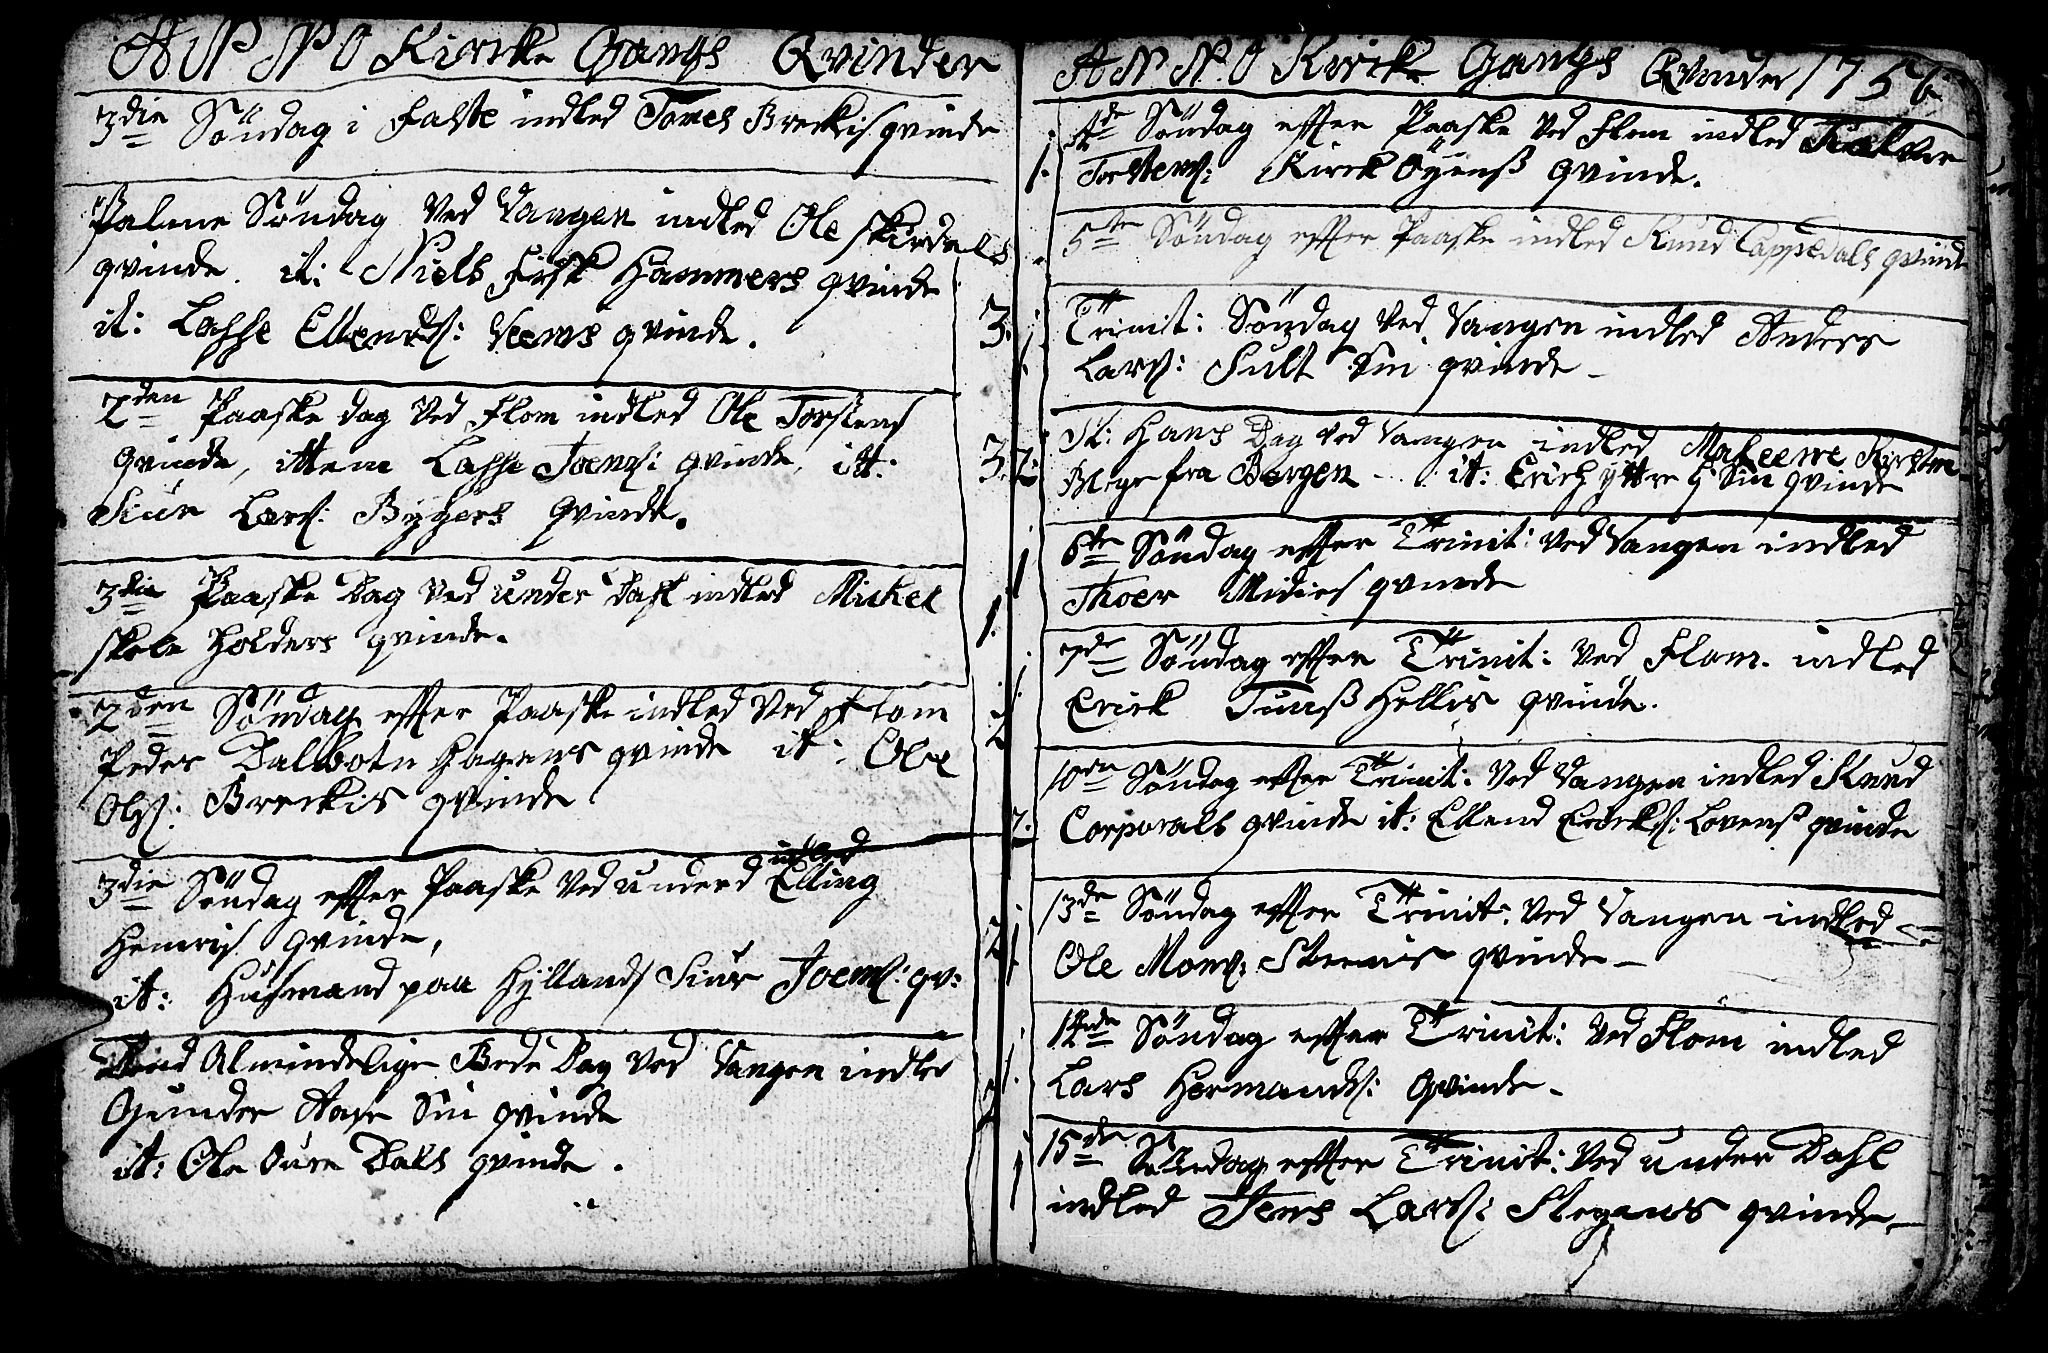 ANNO Kircke Gangs Qvinder
3die Söndag i Faste indled Tomes Breckis qvinde
Palme Söndag Ved Vangen indled Ole Skirdals
qvinde. it: Niels Frisk Hammers qvinde
it: Lasse Ellends: Veems qvinde.
3.
2den Paaske dag Ved Flom indled Ole Torstens
qvinde, ittem Lasse Joens: qvinde, itt:
Siur Lars: Bygers qvinde.
3.
3die Paaske Dag Ved under Dahl indled Mickel
Skole Holders qvinde.
1.
2den Söndag effter Paaske indled Ved Flom
Peder Dalbotn Hagens qvinde it: Ole
Ols: Breckis qvinde
2
3die Söndag effter Paaske Ved underd indled Elling
Henris qvinde,
it: Husmand paa Hyllands Siur Joens: qv:
2
Almindelige Bede Dag Ved Vangen indled
Gunder Aase Sin qvinde
it: Ole Dure Dals qvinde.
2
ANNO Kircke Gangs Qvinder 1756
4de Söndag effter Paaske Ved Flom indled
Torstens: Kirck Öyens qvinde.
1.
5te Söndag effter Paaske indled Knud Cappedals qvinde
Trinit: Söndag Ved Vangen indled Anders
Lars: Sult Sin qvinde
1
St: Hans Dag Ved Vangen indled Maleene
fra Bergen - it: Erich yttre Sin qvinde
2:
6te Söndag effter Trinit: Ved Vangen indled
Thoer Midies qvinde
1
7de Söndag effter Trinit: Ved Flom. indled
Erick Tunshellis qvinde.
1.
10de Söndag effter Trinit: Ved Vangen indled Knud
Corporals qvinde it: Ellend Ericks: Lovens qvinde
2.
13de Söndag effter Trinit: Ved Vangen indled
Ole Mons: Steenis qvinde
1
14de Söndag effter Trinit: Ved Flom indled
Lars Hermands: qvinde
1.
15de Söndag effter Trinit: Ved under Dahl
indled Jens Lars: Stegens qvinde
1